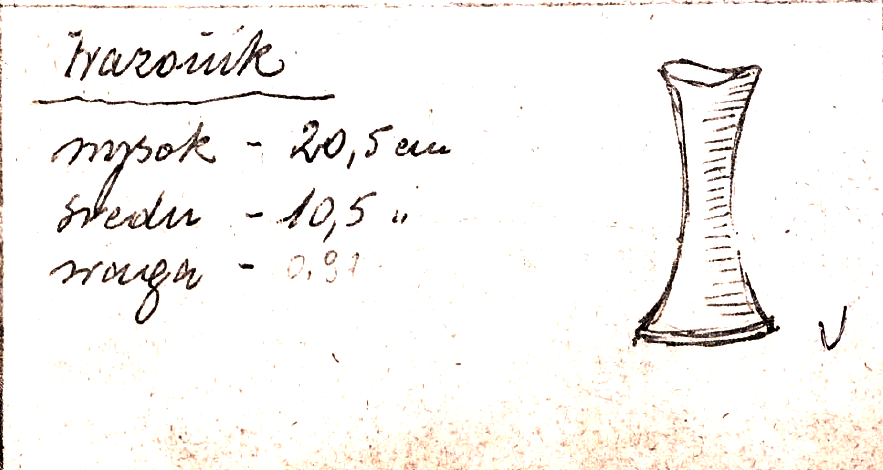 Wazonik
wysok - 20,5 cm
średn - 10,5 "
waga - 0,97
V